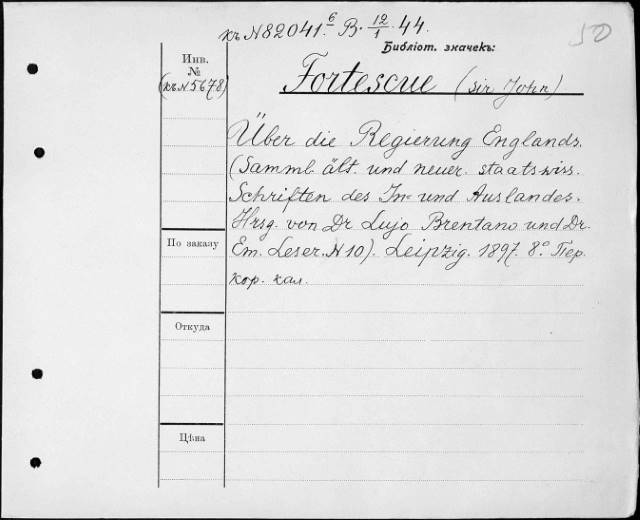 къ N 82041.⁶ B. 12/1. 44.
50
Библіот. значекъ:
Инв.
№
(къ N 5678)
Fortescue (sir John)
Über die Regierung Englands.
(Samml. ält. und neuer. staatswiss.
Schriften des In- und Auslandes.
Hrsg. von Dr Lujo Brentano und Dr.
Em. Leser. N 10). Leipzig. 1897. 8.° Пер.
кор. кал.
По заказу
Откуда
Цѣна